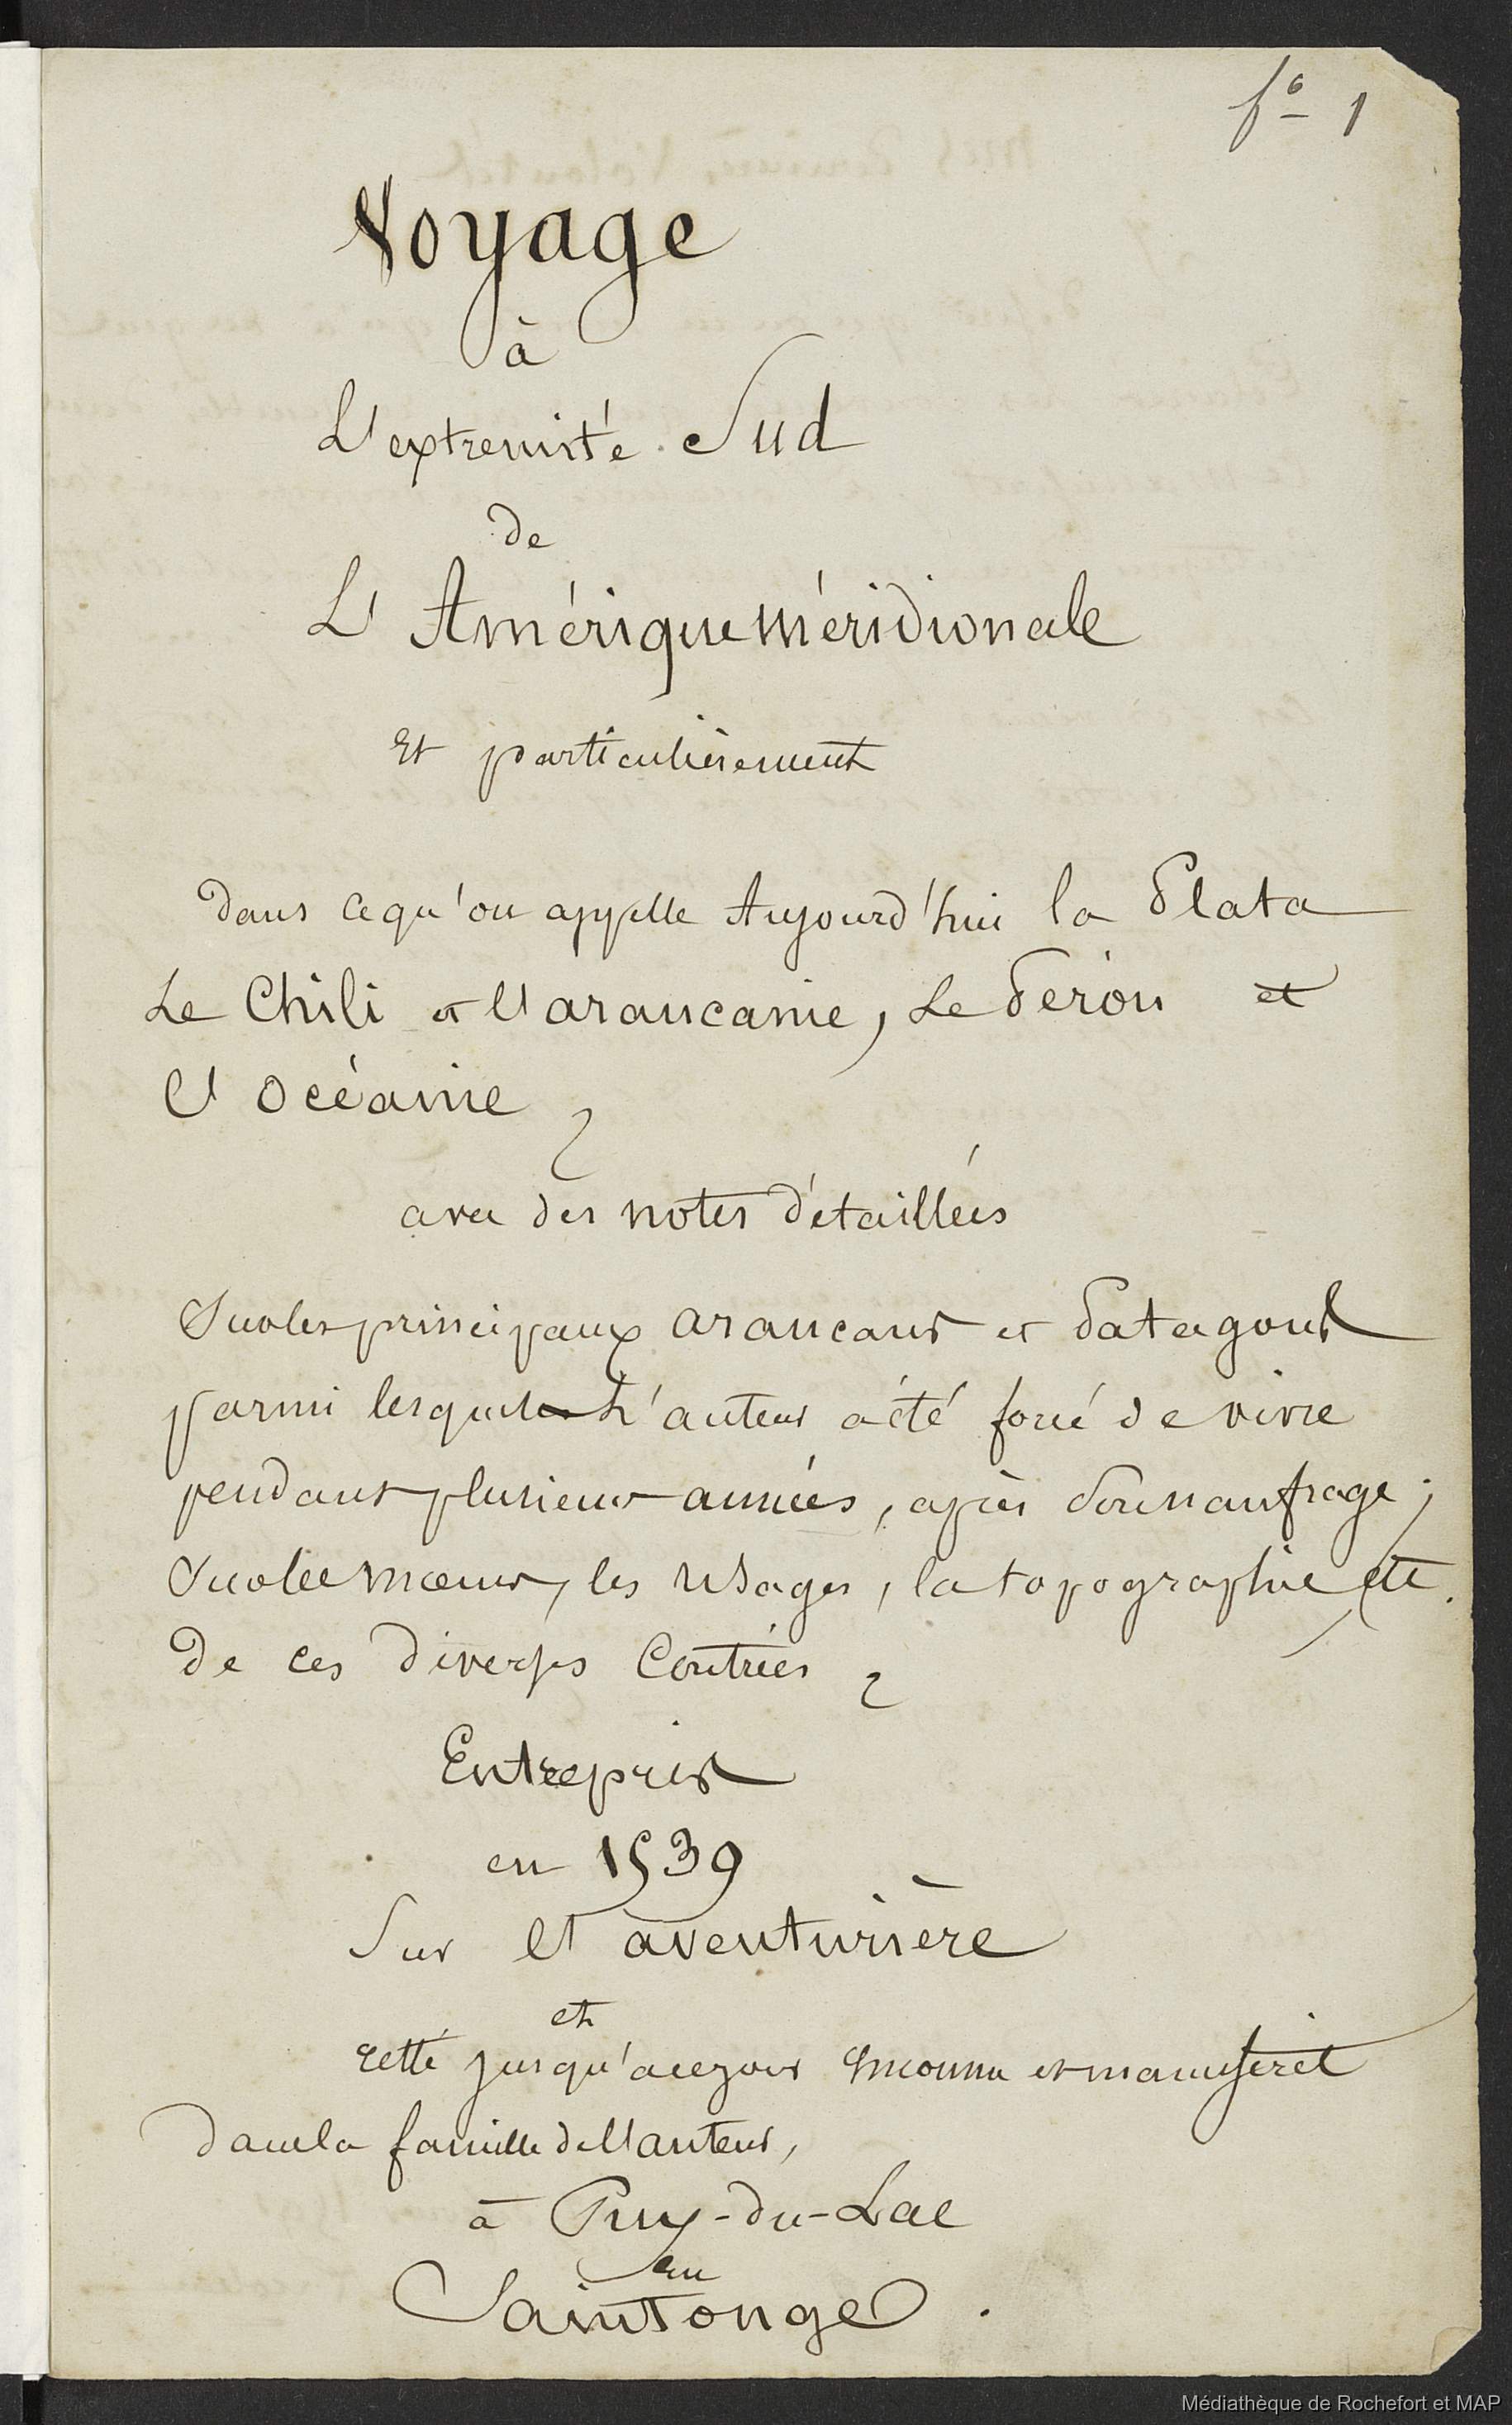 fº 1
Voyage
à
L'extremité Sud
de
L'Amérique méridionale
et particulièrement
dans ce qu'on appelle Aujourd'hui la Plata
Le Chili et l'araucanie, Le Pérou et
l'océanie,
avec des notes détaillées
Sur les principaux araucans et Patagons
parmi lesquels L'auteur a été forcé de vivre
pendant plusieurs années, après son naufrage;
Sur les mœurs, les usages, la topographie etc.
de ces diverses Contrées,
Entrepris
en 1539
Sur l'aventurière
et
resté jusqu'à ce jour inconnu et manuscrit
dans la famille de l'auteur,
à Puy-du-Lac
en
Saintonge.
Médiathèque de Rochefort et MAP